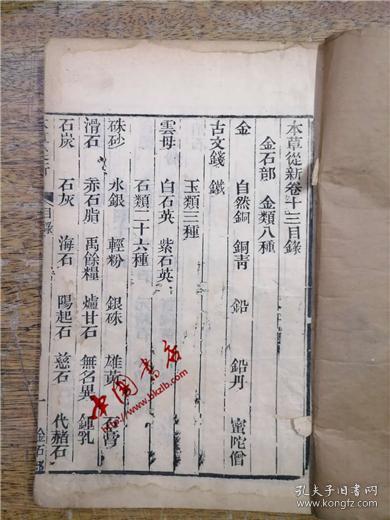 本草從新卷十三目錄
金石部 金類八種
金 自然銅 銅青 鉛 鉛丹 蜜陀僧
古文錢 鐵
玉類三種
雲母 白石英 紫石英
石類二十六種
硃砂 水銀 輕粉 銀硃 雄黃 石膏
滑石 赤石脂 禹餘糧 爐甘石 無名異 鍾乳
石炭 石灰 海石 陽起石 慈石 代赭石
目錄
一 金石部
中國書店
http://www.bkzlb.com
孔夫子旧书网